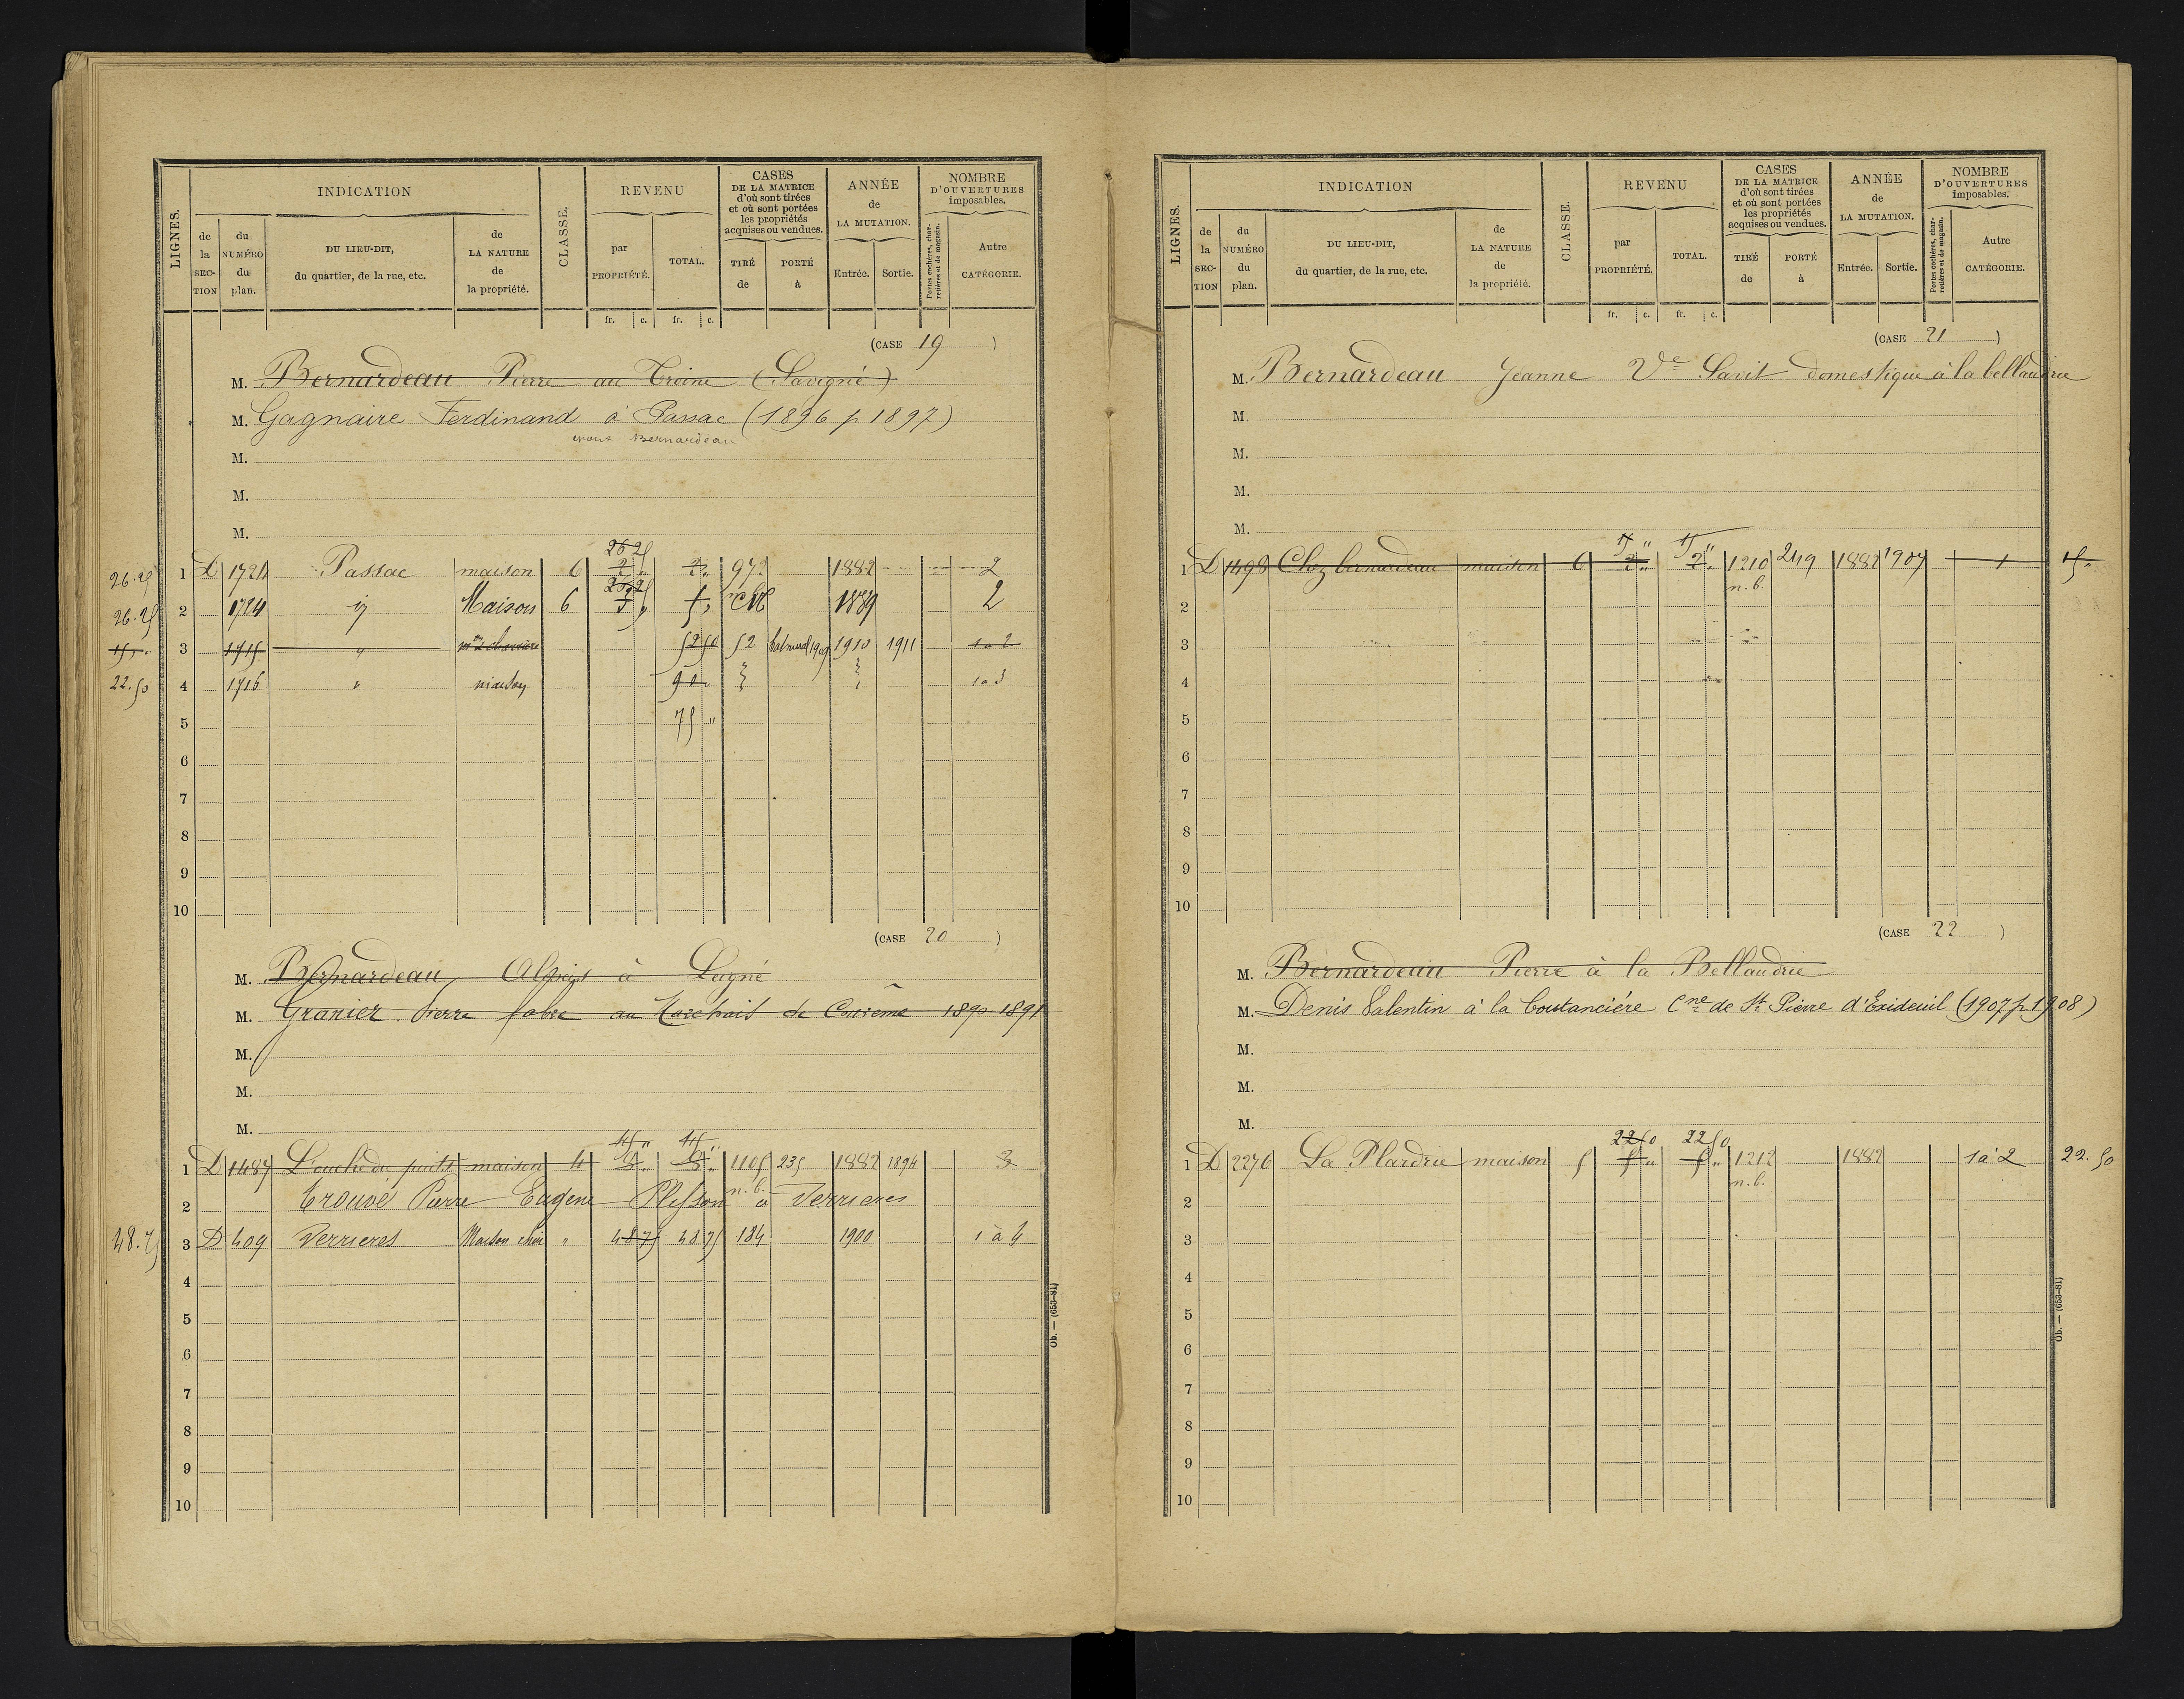 LIGNES.
INDICATION
CLASSE.
REVENU
CASES
DE LA MATRICE
d'où sont tirées
et où sont portées
les propriétés
acquises ou vendues.
ANNÉE
de
LA MUTATION.
NOMBRE
D'OUVERTURES
imposables.
de la SECTION
du NUMÉRO du plan.
DU LIEU-DIT,
du quartier, de la rue, etc.
de LA NATURE de la propriété.
par PROPRIÉTÉ.
TOTAL.
TIRÉ de
PORTÉ à
Entrée.
Sortie.
Portes cochères, charretières et de magasin.
Autre CATÉGORIE.
fr. c. fr. c.
(CASE 19 )
M. Bernardeau Pierre au Treine (Savigné)
M. Gagnaire Ferdinand à Passac (1896 p 1897)
époux Bernardeau
M.
M.
M.
26 25
26.25 1 D 1724 Passac maison 6 2 " 2 " 972 1882 2
26 25
26.25 2 1724 id Maison 6 5 " 5 " CN 1889 2
15 " 3 1715 " 52 50 52 1910 1911 1 à 2
22.50 4 1716 " maison 90 " 1 à 3
5 75 "
6
7
8
9
10
(CASE 20 )
M. Bernardeau à Lugné
M. Granier Pierre fabre au de 1890 1891
M.
M.
M.
45 " 45 "
1 D 1487 L'ouche du puits maison 4 1105 235 1882 1894 3
n.b.
2 Trouvé Pierre Eugene Plesson à Verrieres
48.75 3 D 409 Verrieres Maison " 48 75 48 75 184 1900 1 à 4
4
5
6
7
8
9
10
Ob. — (653-81)
LIGNES.
INDICATION
CLASSE.
REVENU
CASES
DE LA MATRICE
d'où sont tirées
et où sont portées
les propriétés
acquises ou vendues.
ANNÉE
de
LA MUTATION.
NOMBRE
D'OUVERTURES
imposables.
de la SECTION
du NUMÉRO du plan.
DU LIEU-DIT,
du quartier, de la rue, etc.
de LA NATURE de la propriété.
par PROPRIÉTÉ.
TOTAL.
TIRÉ de
PORTÉ à
Entrée.
Sortie.
Portes cochères, charretières et de magasin.
Autre CATÉGORIE.
fr. c. fr. c.
(CASE 21 )
M. Bernardeau Jeanne Ve domestique à la bellaudrie
M.
M.
M.
M.
15 " 15 "
1 D 1498 Cloz bernardeau maison 6 2 " 2 " 1210 249 1882 1907 1 15 "
n.b.
2
3
4
5
6
7
8
9
10
(CASE 22 )
M. Bernardeau Pierre à la Bellaudrie
M. Denis Valentin à la Coutancière Cne de St Pierre d'Exideuil (1907 p 1908)
M.
M.
M.
22 50 22 50
1 D 2276 La Plardrie maison 5 5 " 5 " 1212 1882 1 à 2 22.50
n.b.
2
3
4
5
6
7
8
9
10
Ob. — (653-81)